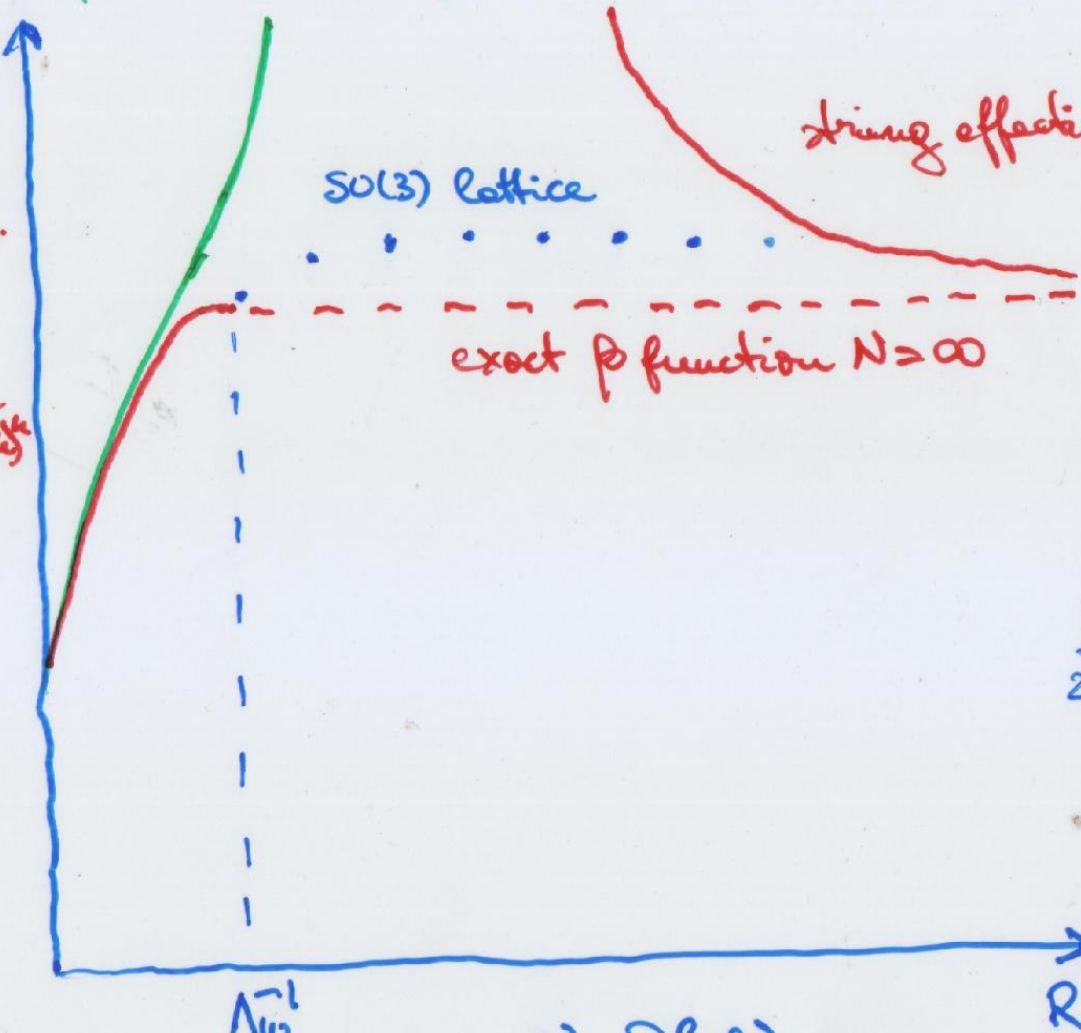 string effecti
SU(3) lattice
exact β function N=∞
R